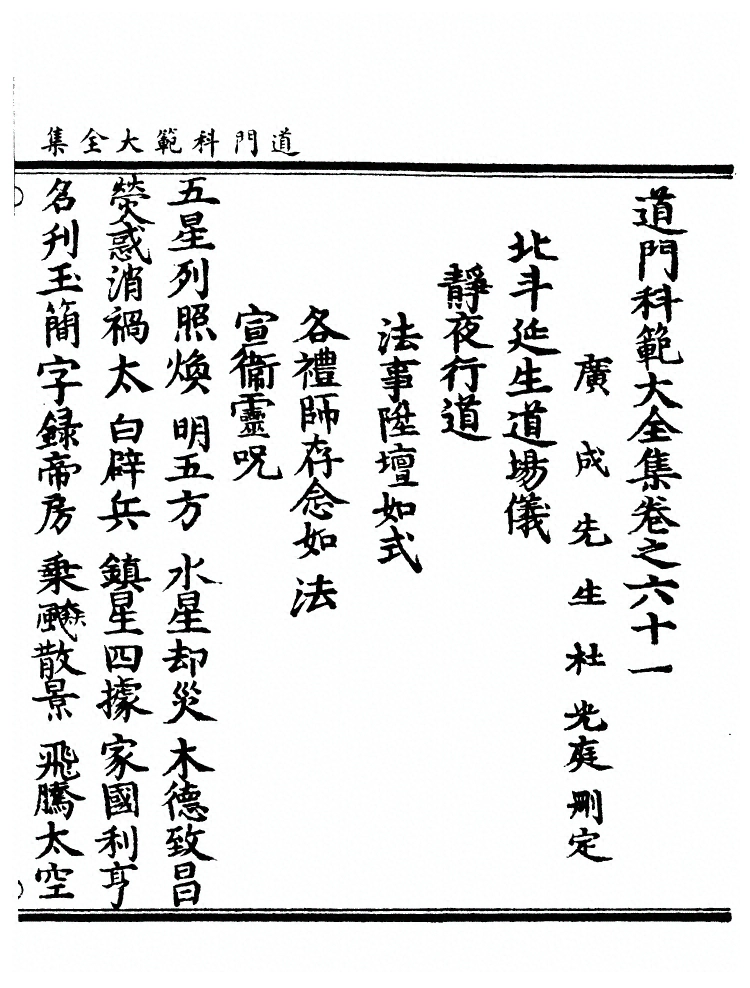 道門科範大全集
道門科範大全集卷之六十一
廣成先生杜光庭刪定
北斗延生道場儀
靜夜行道
法事陞壇如式
各禮師存念如法
宣衞靈呪
五星列照煥明五方水星却災木德致昌
熒惑消禍太白辟兵鎮星四據家國利亨
名刋玉簡字録帝房乗飈散景飛騰太空